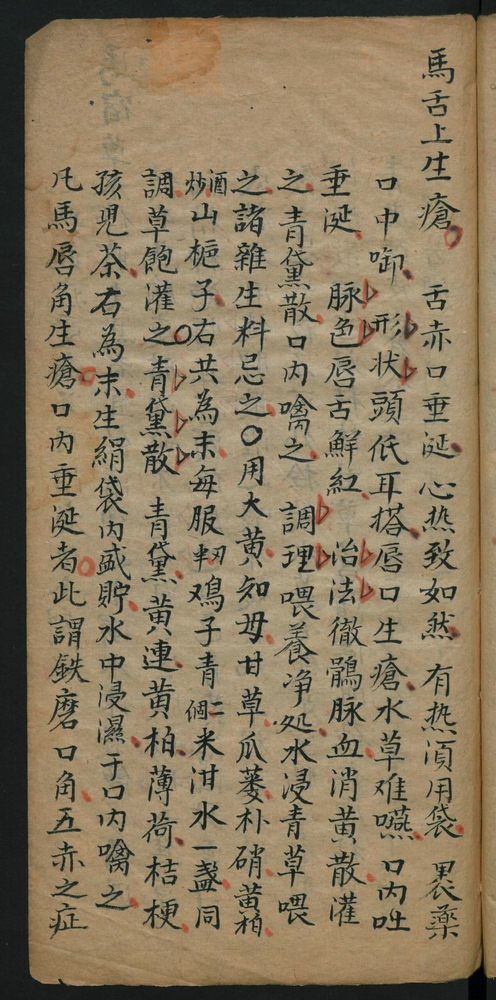 馬舌上生瘡 舌赤口垂涎心热致如然有热須用袋裹藥
口中啣形状頭低耳搭唇口生瘡水草难嚥口內吐
垂涎 脉色唇舌鮮紅 治法徹鶻脉血消黄散灌
之青黛散口內噙之 調理喂養净処水浸青草喂
之諸雜生料忌之〇用大黄知母甘草瓜蔞朴硝黄柏
酒炒山梔子右共為末每服 雞子青二個米泔水一盞同
調草飽灌之〇青黛散 青黛黄連黄柏薄荷桔梗
孩児茶右為末生絹袋內盛貯水中浸濕于口內噙之
凡馬唇角生瘡口內垂涎者此謂鉄磨口角五赤之症